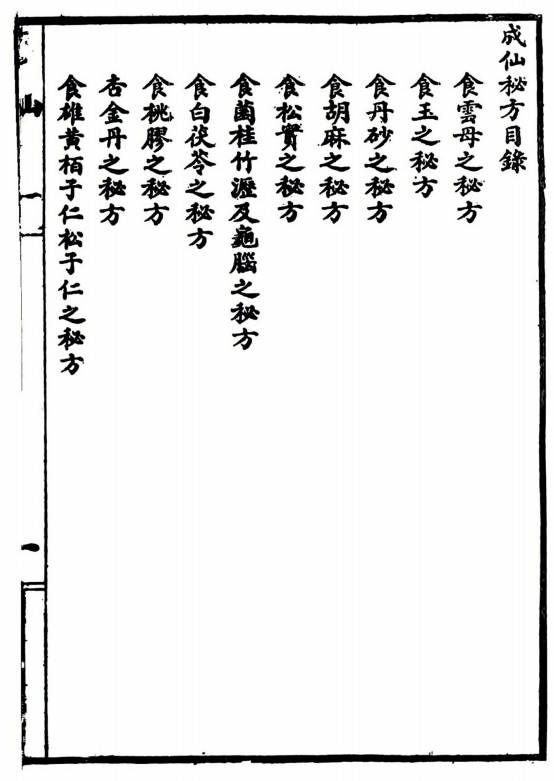 成仙秘方目錄
食雲母之秘方
食玉之秘方
食丹砂之秘方
食胡麻之秘方
食松實之秘方
食菌桂竹瀝及龜腦之秘方
食白茯苓之秘方
食桃膠之秘方
杏金丹之秘方
食雄黃栢子仁松子仁之秘方
一